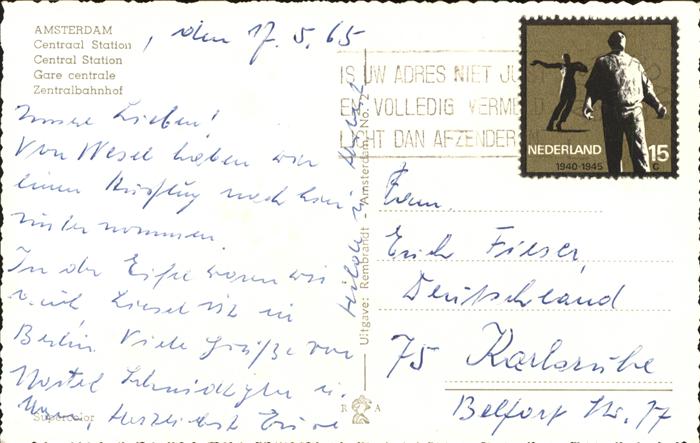 AMSTERDAM
Centraal Station
Central Station
Gare centrale
Zentralbahnhof
, den 17.5.65
Unsere Lieben!
Von Wesel haben wir
einen Ausflug nach hier
unternommen.
In der Eifel waren wir
auch, Liesel ist in
Berlin. Viele Grüße von
u.
herzlichst
Supercolor
Uitgave: Rembrandt - Amsterdam No. 2
R A
IS UW ADRES NIET JUIST
EN VOLLEDIG VERMELD
LICHT DAN AFZENDER
NEDERLAND
1940-1945
15
c
Fam.
Erich Fieser,
Deutschland
75 Karlsruhe
Belfort Str. 17